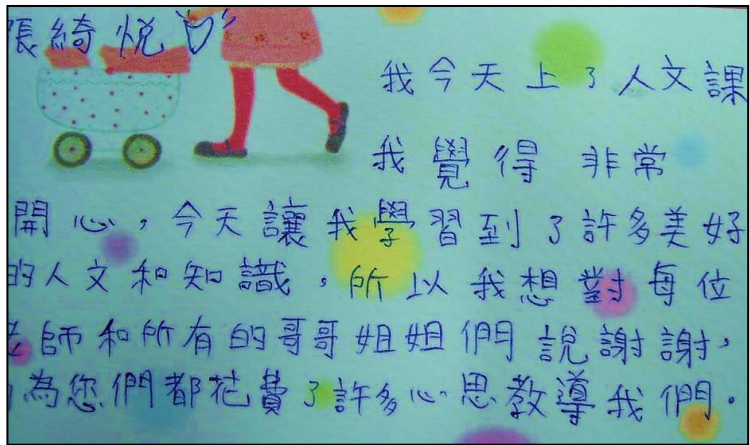 張綺悅
我今天上了人文課
我覺得非常
開心，今天讓我學習到了許多美好
的人文和知識，所以我想對每位
老師和所有的哥哥姐姐們說謝謝，
因為您們都花費了許多心思教導我們。